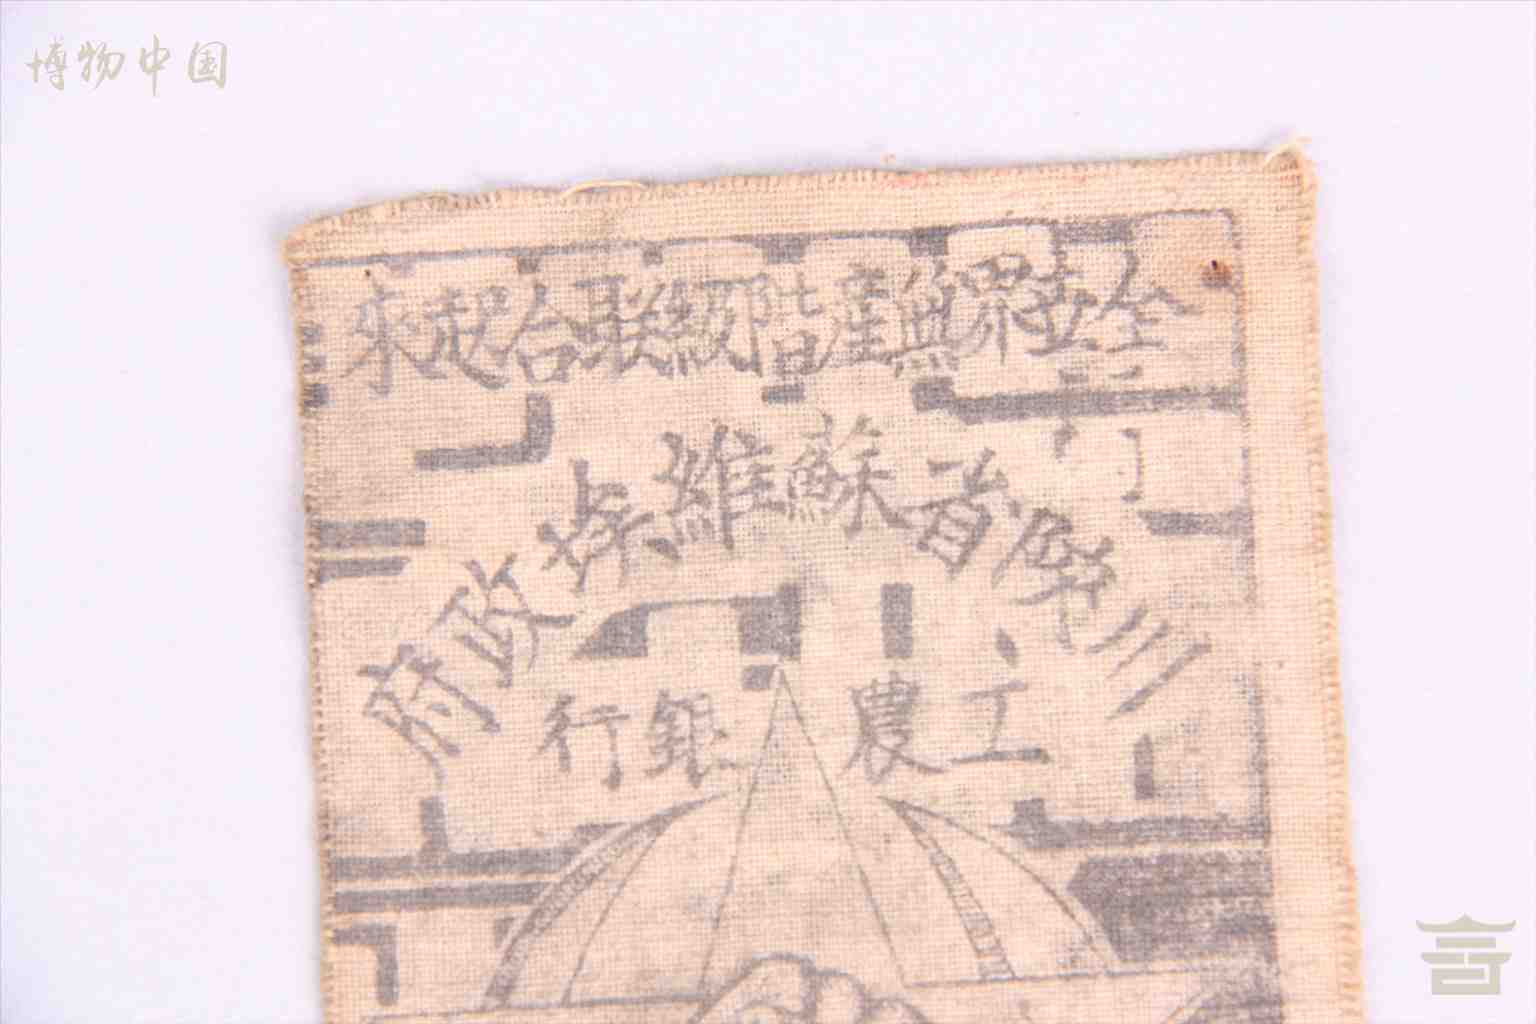 博物中国
全世界無產階級联合起來
川陝省蘇維埃政府
工農銀行